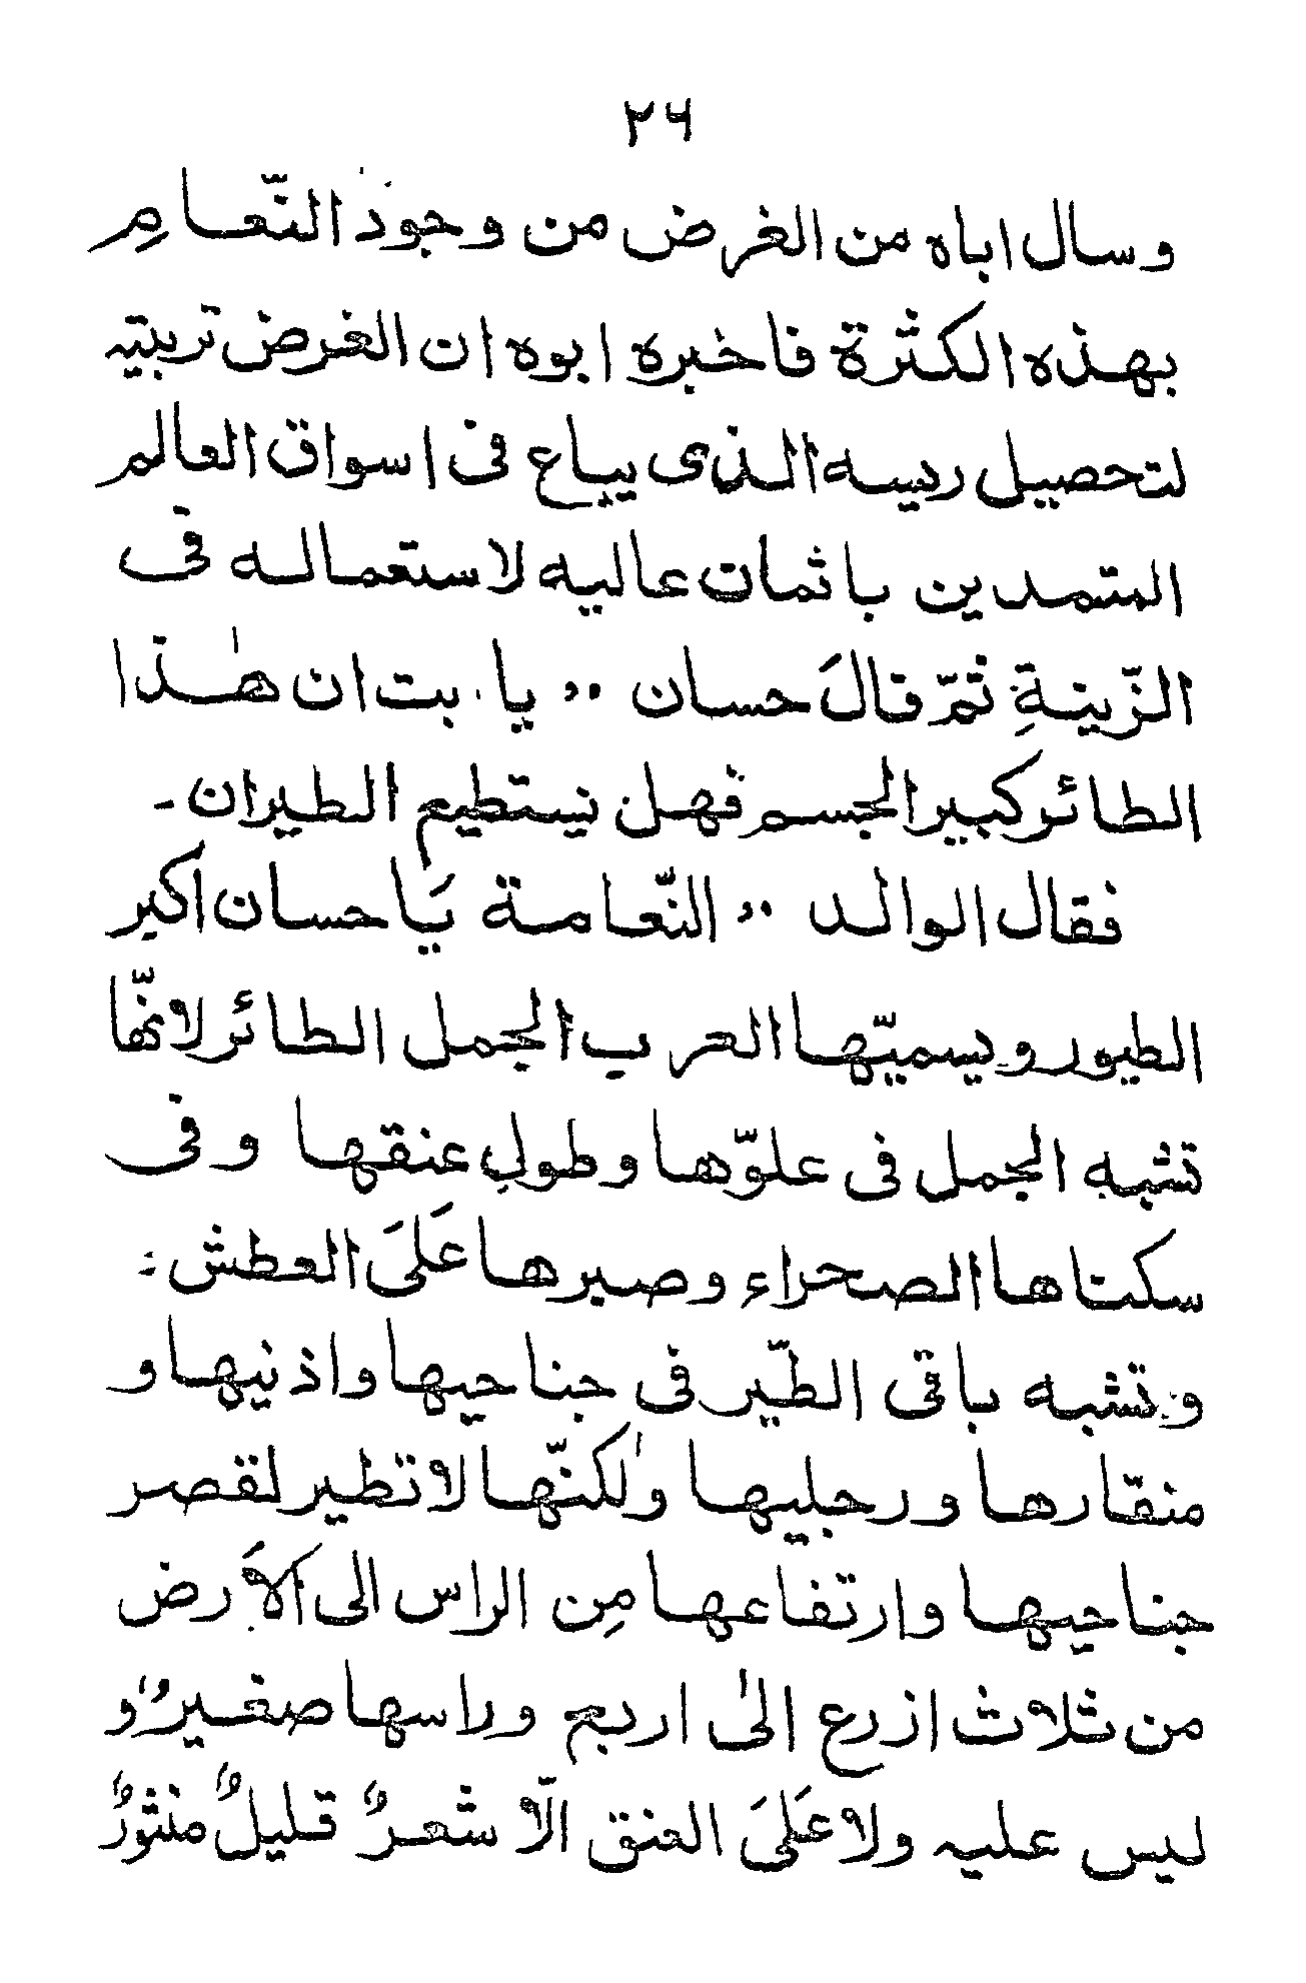 ۲۶
وسال اباه من الغرض من وجود النّعامِ
بهذه الكثرة فاخبره ابوه ان الغرض تربيته
لتحصيل ريسه الذى يباع فى اسواق العالم
المتمدين باثمان عاليه لاستعماله فى
الزّينةِ ثمّ قالَ حسان ,, يا بت ان هٰذا
الطائر كبير الجسم فهل نيستطيع الطيران -
فقال الوالد ,, النّعامة يَا حسان اكبر
الطيور ويسميّها العرب الجمل الطائر لانّها
تشبه الجمل فى علوّها وطولِ عنقها وفى
سكناها الصحراء وصبرها عَلىَ العطش :
وتشبه باقى الطّير فى جناحيها واذنيها و
منقّارها ورجليها ولٰكنّها لا تطير لقصر
جناحيها وارتفاعها مِن الراس الى الأَرض
من ثلاث ازرع الىٰ اربع وراسها صغيرٌ و
ليس عليه ولا عَلىَ العنق الّا شعرٌ قليلٌ منثورٌ